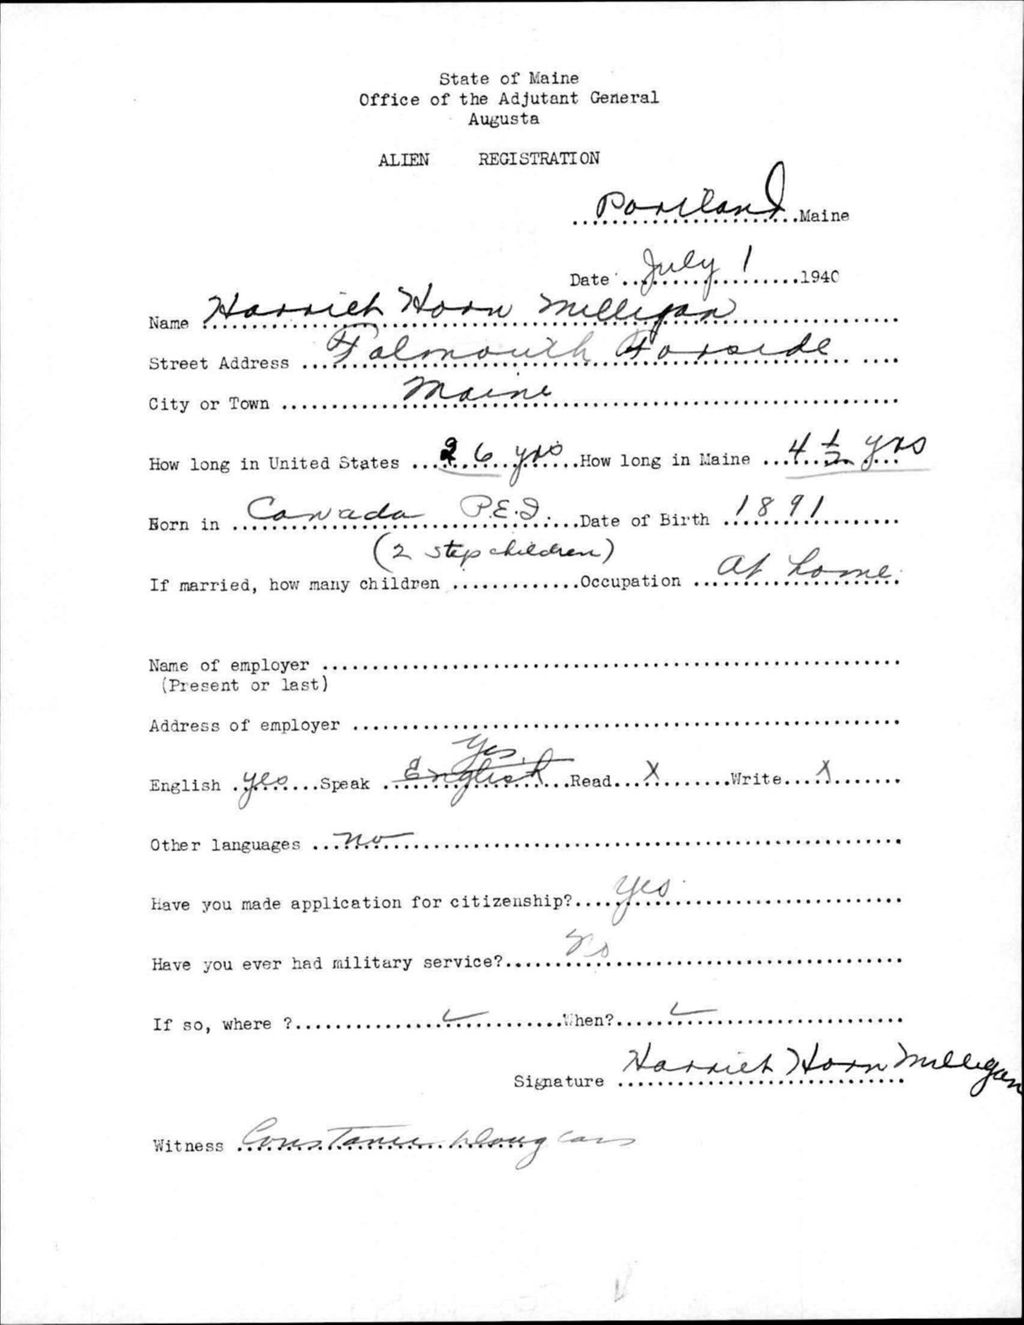 State of Maine
Office of the Adjutant General
Augusta
ALIEN REGISTRATION
Portland Maine
Date July 1 1940
Name Harriet Horn Milligan
Street Address Falmouth Foreside
City or Town Maine
How long in United States 26 yrs How long in Maine 4 1/2 yrs
Born in Canada P.E.I. Date of Birth 1891
(2 step children)
If married, how many children Occupation At home.
Name of employer
(Present or last)
Address of employer
Yes.
English yes Speak English Read X Write X
Other languages no
Have you made application for citizenship? Yes
Have you ever had military service? No
If so, where ? ✓ When? ✓
Signature Harriet Horn Milligan
Witness Constance Douglass